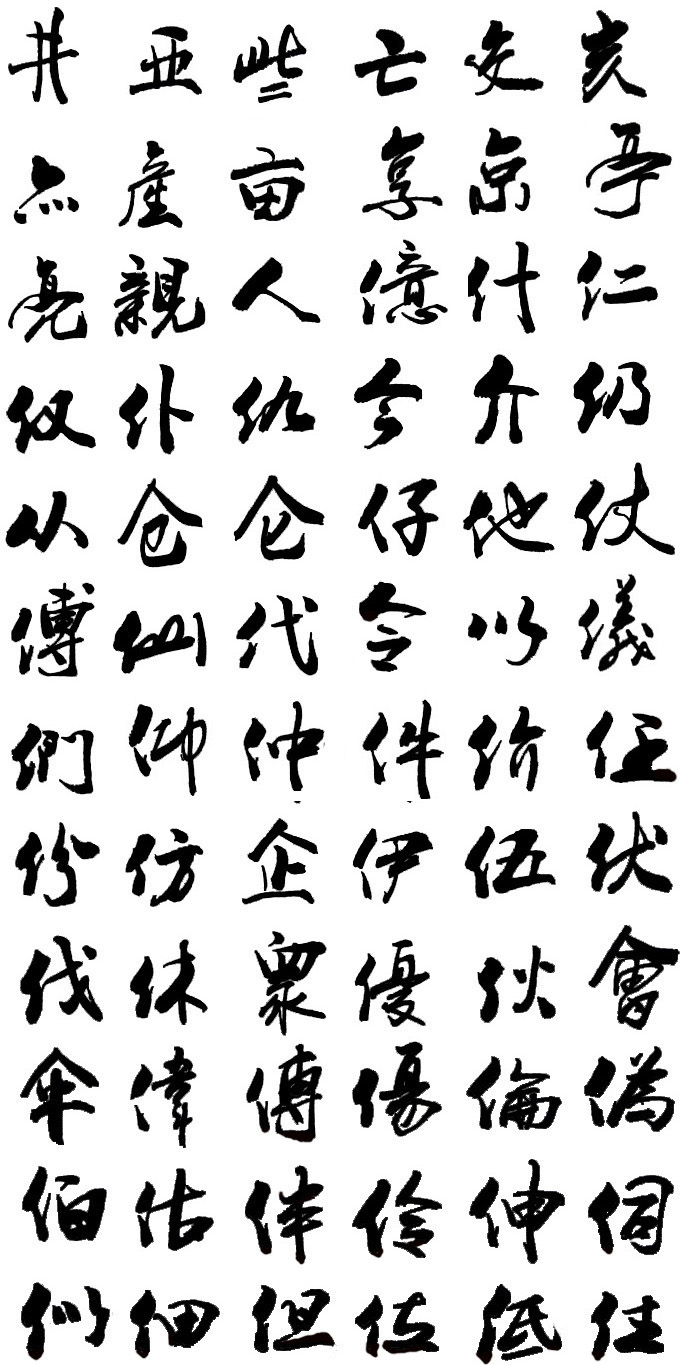 井 亞 些 亡 交 亥
亦 産 亩 享 京 亭
亮 親 人 億 什 仁
仅 仆 仇 今 介 仍
从 仓 仑 仔 他 仗
傅 仙 代 令 以 儀
們 仰 仲 件 价 任
份 仿 企 伊 伍 伏
伐 休 衆 優 伙 會
伞 偉 傳 傷 倫 偽
伯 估 伴 伶 伸 伺
似 佃 但 位 低 住